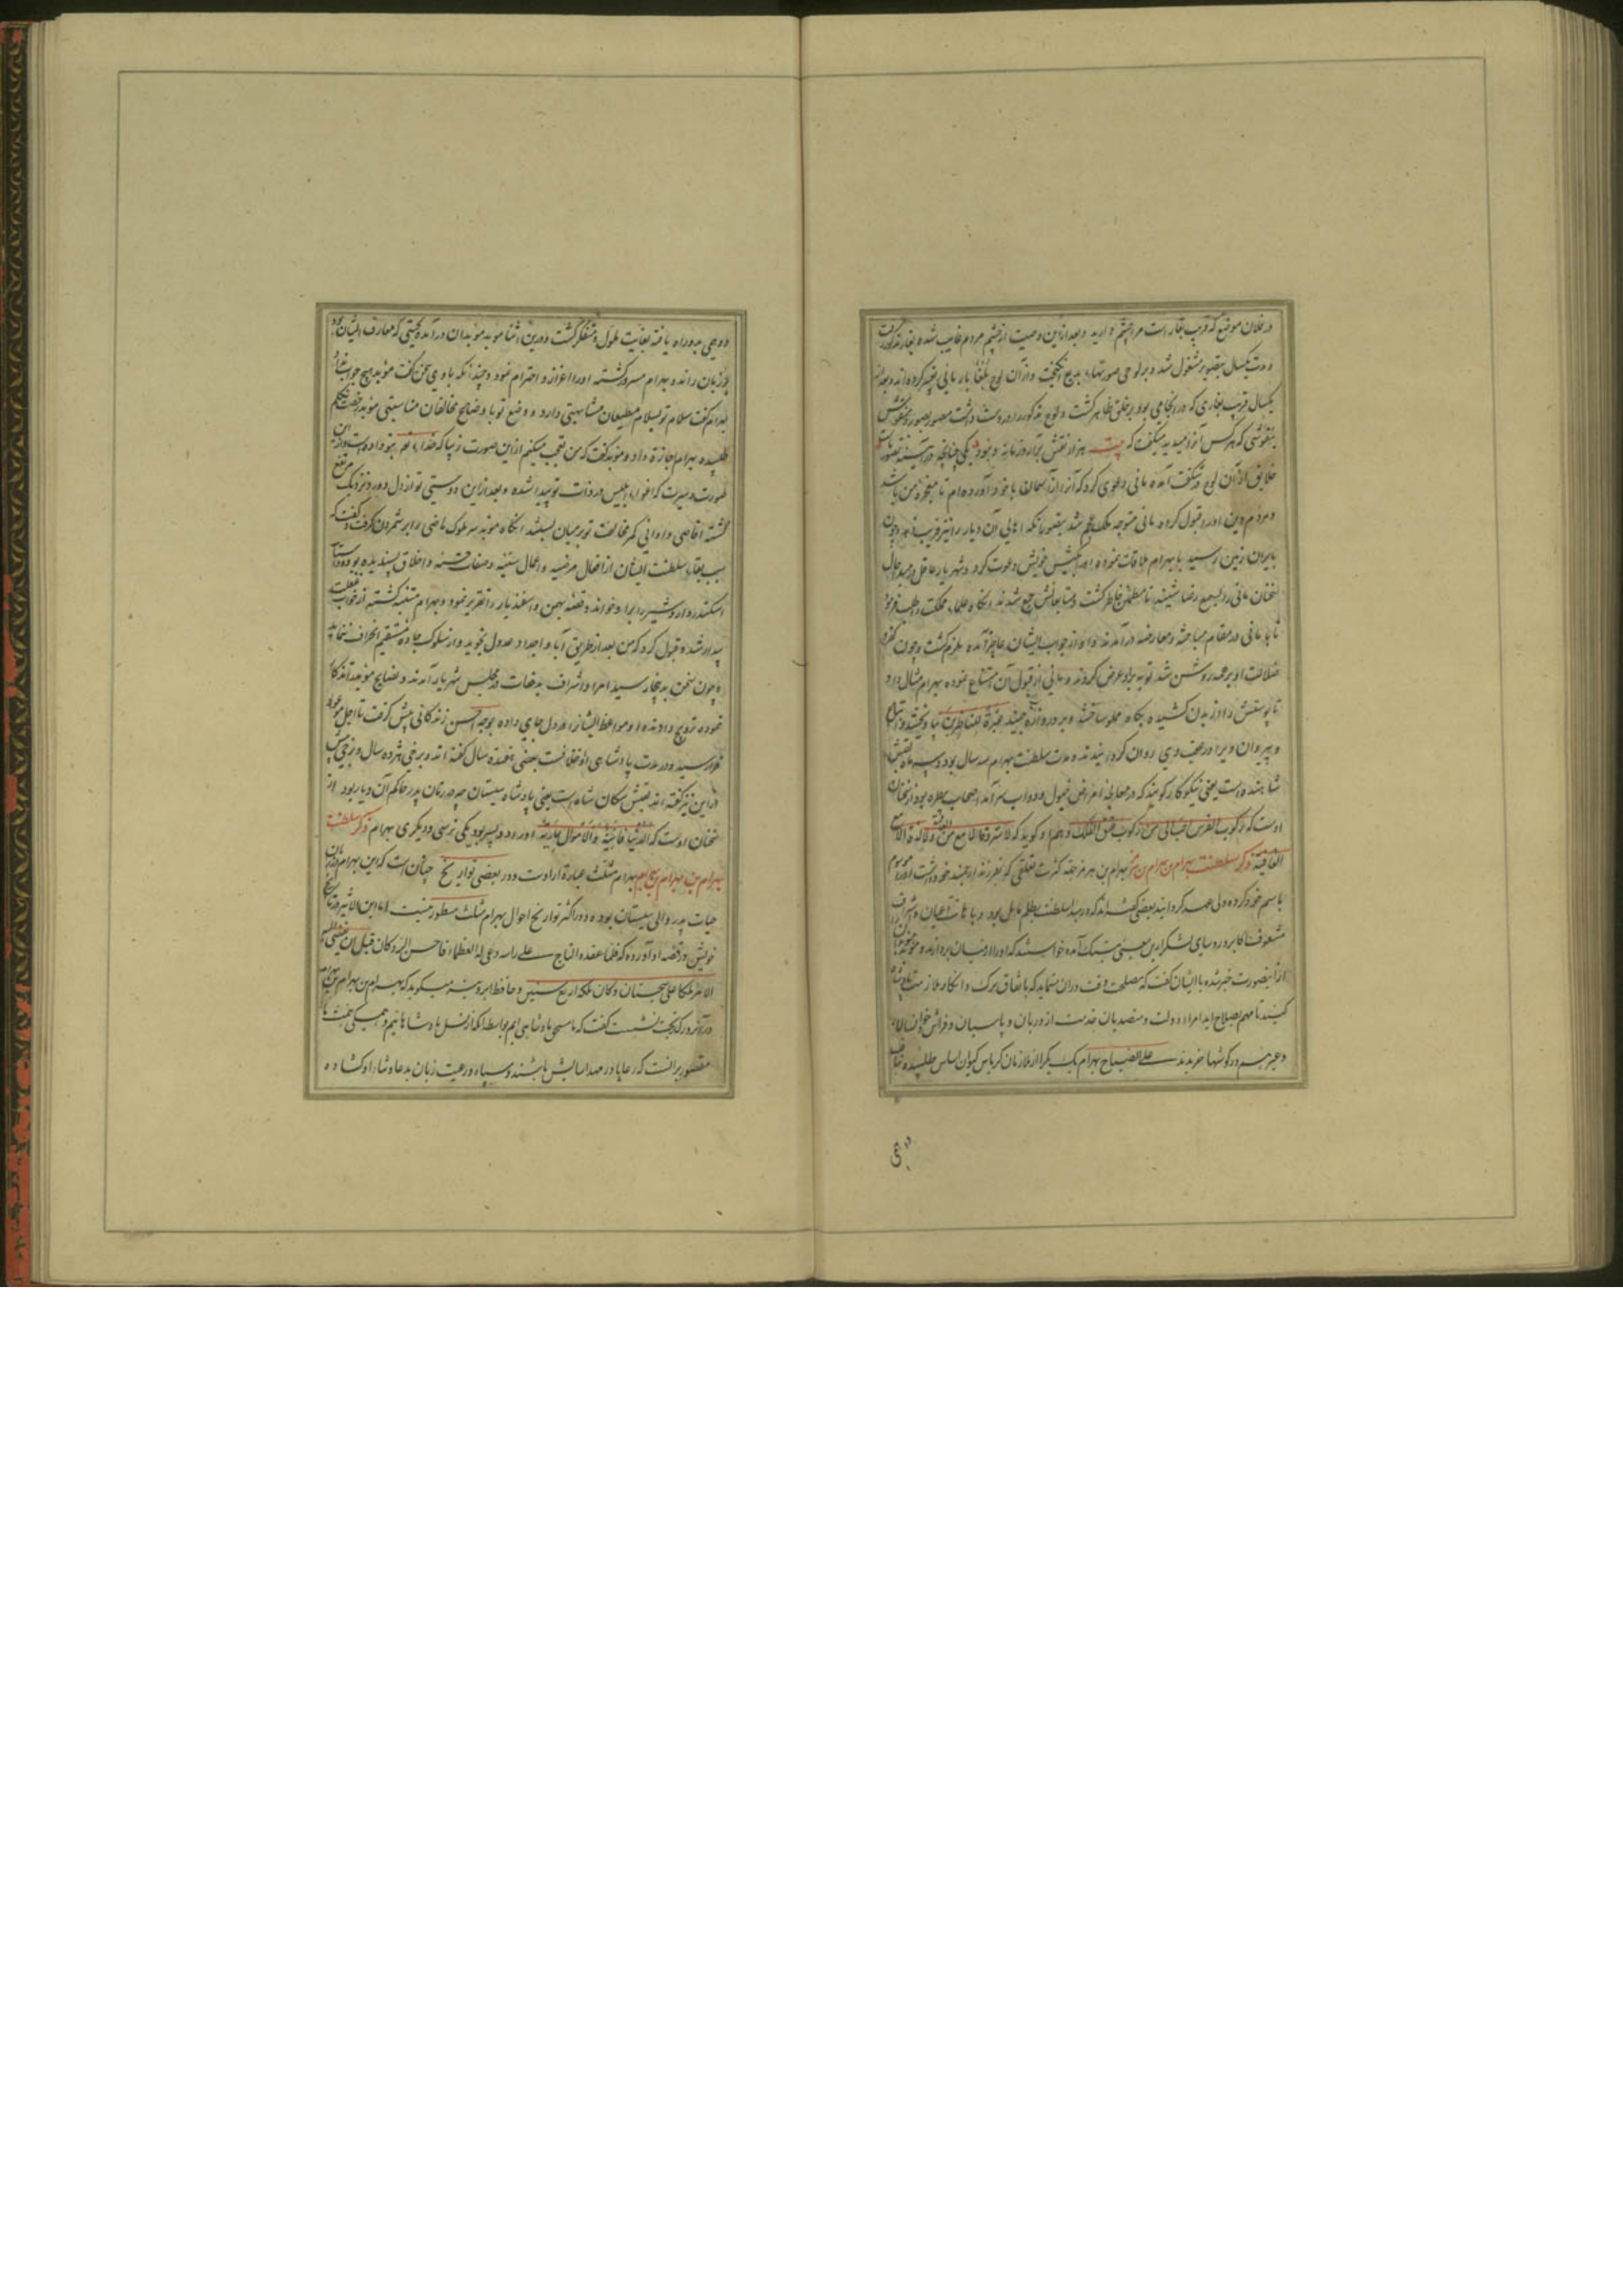 در فلان موضع که قریب بغار است مرا چشم دارید و بعد ازین وصیت از چشم مردم غایب شده بغار مذکور رفت
و مدت یکسال بتصویر مشغول شد و بر لوحی صورتهاء بدیع انگیخت و از آن لوح بلغا بار مانی تعبیر کرده‌اند و بعد از
یکسال قریب بغاری که در انجا می بود بر خلق ظاهر گشت و لوح مذکور را در دست داشت مصور بصور و منقوش
بنقوشی که هر کس آنرا میدید میگفت که بیت هزار نقش برآرد زمانه و نبود یکی چنانچه در آیینه تصور ماست
خلایق از آن لوح در شگفت آمده مانی دعوی کرد که آنرا از آسمان با خود آورده‌ام تا معجزه من باشد
و مردم دین او را قبول کرده مانی متوجه ملک عجم شد بتصور آنکه اهالی آن دیار را نیز فریب دهد و چون
بایران زمین رسید با بهرام ملاقات نموده او را بکیش خویش دعوت کرد و شهریار عاقل در مبدا حال
سخنان مانی را بسمع رضا شنید تا مطمئن خاطر گشت و متابعانش جمع شدند آنگاه علماء مملکت را طلب فرمود
تا با مانی در مقام مباحثه و معارضه درآمدند و او از جواب ایشان عاجز آمده ملزم گشت و چون کفر و
ضلالت او بر همه روشن شد توبه برو عرض کردند و مانی از قبول آن امتناع نموده بهرام مثال داد
تا پوستش را از بدن کشیده بکاه مملو ساختند و بر دروازه جنید عبرة للناظرین بیاویختند و اتباع
و پیروان ویرا در عقب وی روان گردانیدند مدت سلطنت بهرام سه سال بود و سه ماه لقبش
شاهنده است یعنی نیکوکار گویند که در معالجه امراض خیول و دواب سرآمد اصحاب بیطره بود از سخنان
اوست که رکوب الفرس
العاقبة ذکر سلطنت بهرام بن بهرام بن هرمز بهرام بن هرمز جهة کثرت تعلقی که بفرزند ارجمند خود داشت او را موسوم
باسم خود کرده ولی عهد گردانید بعضی گفته‌اند که در مبدا سلطنت بظلم مایل بود و باهانت اعیان و اشراف
مشعوف اکابر و روسای لشکر ازین معنی بتنگ آمده خواستند که او را از میان بردارند و موبد موبدان
ازینصورت خبر شده با ایشان گفت که مصلحت وقت دران مینماید که باتفاق ترک
کنید تا مهم باصلاح آید امراء دولت و متصدیان خدمت از دربان و پاسبان و فراش و خوان سالار
و غیرهم در گوشها خزیدند علی الصباح بهرام یک یک را از ملازمان کریاس گردون اساس طلبیده
دیاری
بهرام گفت سلام تو بسلام مطیعان مشابهتی دارد و وضع تو با اوضاع مخالفان مناسبتی موبد رخصت تکلم
طلبیده بهرام اجازة داد و موبد گفت که من تعجب میکنم ازین صورت زیبا که خداء تعالی بتو داده است و ازین
گشته اقاصی و ادانی کمر مخالفت تو بر میان بستند آنگاه موبد سیر ملوک ماضی را بر شمردن گرفت و گفت که
سبب بقاء سلطنت ایشان از افعال مرضیه و اعمال سنیه و صفات حسنه و اخلاق پسندیده بود و داستان
اسکندر و اردشیر را برو خواند و قصه بهمن و اسفندیار را تقریر نمود و بهرام متنبه گشته از خواب غفلت
بیدار شد و قبول کرد که من بعد از طریق آبا و اجداد عدول نجوید و از سلوک جاده مستقیم انحراف ننماید
و چون سخن بدینجا رسید امرا و اشراف بدفعات در مجلس شهریار آمدند و نصایح موبد
نموده ترویج دادند و او مواعظ ایشانرا در دل جای داده بوجه احسن زندگانی پیش گرفت تا اجل موعود
فرا رسید و در مدت پادشاهی او خلافست بعضی هفده سال گفته اند و برخی هژده سال و
ازین نیز گفته اند لقبش سکان شاه است یعنی پادشاه سیستان چه در زمان پدر حاکم آن دیار بود از
سخنان اوست که الدنیا فانیة والاموال عاریة او را دو پسر بود یکی نرسی و دیگری بهرام ذکر سلطنت
بهرام بن بهرام بن بهرام بهرام مثلث عبارة از اوست و در بعضی تواریخ چنان است که این بهرام در زمان
حیات پدر والی سیستان بوده و در اکثر تواریخ احوال بهرام مثلث مسطور نیست اما ابن الاثیر در تاریخ
خویش در قصه او آورده که فلما عقد التاج علی راسه دعی له العظماء فاحسن الرد و کان قبل ان یفضی الیه
الامر ملکا علی سجستان و کان ملکه اربع سنین و حافظ ابرو نیز میگوید که بهرام بن بهرام
در آنروز که بتخت نشست گفت که ما مستحق پادشاهی ایم بواسطه آنکه از نسل پادشاهانیم و همگی همت ما
مقصور بر آنست که رعایا در مهد آسایش باشند و سپاه و رعیت زبان بدعا و ثناء او گشاده